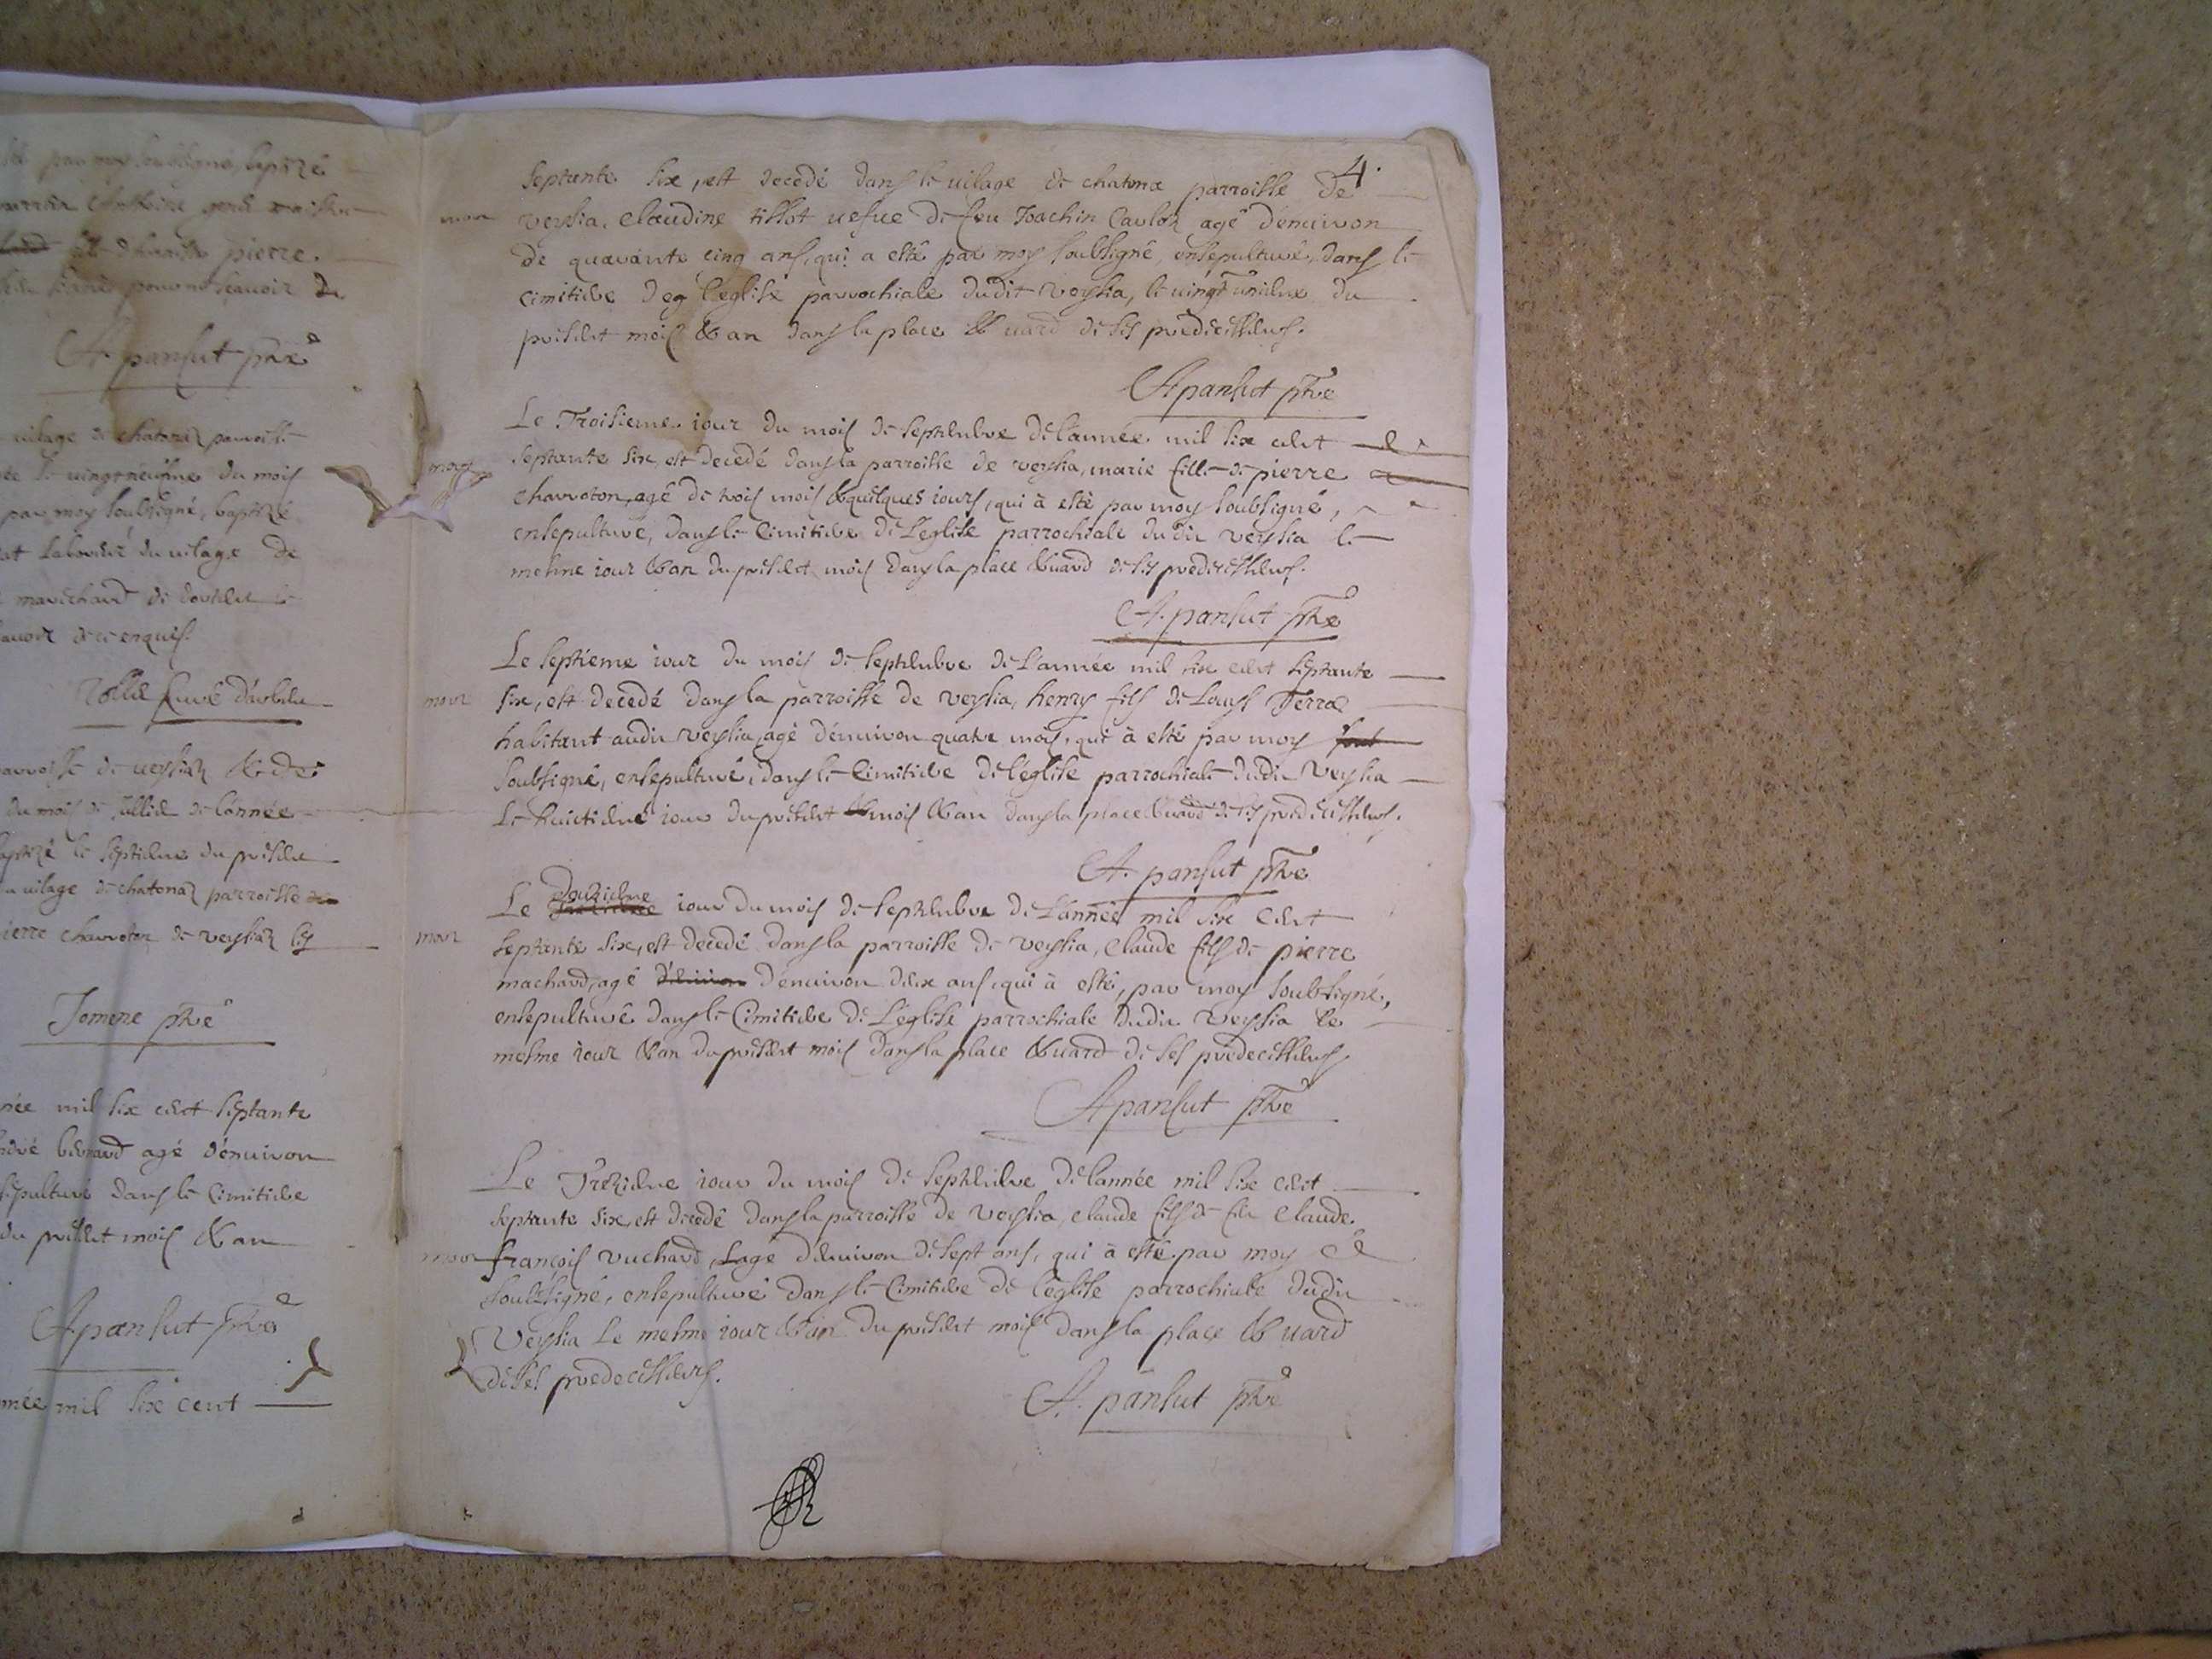 par moy soubsigné, baptizé
pierre.
A. pansut ptre
vilage de chatonaz parroisse
le vingt neufme du mois
par moy soubsigné, baptizé
du vilage de
marchand de
de ce enquis.
parroisse de veyssiaz
du mois de Jullie de l'année
baptizé le septieme du present
vilage de chatonaz parroisse
pierre charroton de veyssiaz
Jomene ptre
année mil six cent septante
agé d'enuiron
ensepulturé dans le Cimitiere
du present mois & an
A pansut ptre
année mil six cent
4.
septante six, est decedé dans le uilage de chatona parroisse de
mor veyssia, claudine tissot uefue de feu Joachin Carloz agé d'enuiron
de quarante cinq ans, qui a esté par moy soubsigné, ensepulturé, dans le
cimitiere deg l'eglise parrochiale dudit veyssia, le uingt unieme du
present mois & an dans la place & uard de ses predecesseurs.
A pansut ptre
Le Troisieme iour du mois de septembre de l'année mil six cent
mor septante six, est decedé dans la parroisse de veyssia, marie fille de pierre
charroton, agé de trois mois & quelques iours, qui à esté par moy soubsigné,
ensepulturé, dans le Cimitiere de L'eglise parrochiale dudit veyssia le
mesme iour & an du present mois dans la place & uard de ses predecesseurs.
A. pansut ptre
Le septieme iour du mois de septembre de L'année mil six cent septante
mor six, est decedé dans la parroisse de veyssia, henry fils de Louys Ferraz
habitant audit veyssia, agé d'enuiron quatre mois, qui à esté par moy sout
soubsigné, ensepulturé, dans le Cimitiere de l'eglise parrochiale dudit Veyssia
Le huictieme iour du present & mois & an dans la place & uard de ses predecesseurs.
A. pansut ptre
Le douzieme iour du mois de septembre de L'année mil six cent
mor septante six, est decedé dans la parroisse de veyssia, claude fils de pierre
machard, agé d'enuiron d'enuiron deux ans, qui à esté, par moy soubsigné,
ensepulturé dans le Cimitiere de L'eglise parrochiale dudit veyssia le
mesme iour & an du present mois dans la place & uard de ses predecesseurs.
A pansut ptre
Le Trezieme iour du mois de septembre de l'année mil six cent
septante six, est decedé dans la parroisse de veyssia, claude fils de feu claude
mor françois vuchard, L'agé d'enuiron de sept ans, qui à esté par moy
soubsigné, ensepulturé dans le Cimitiere de l'eglise parrochiale dudit
Veyssia Le mesme iour & an du present mois dans la place & uard
de ses predecesseurs.
A. pansut ptre